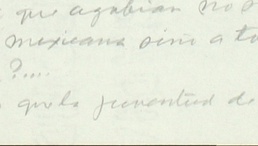 que agabian no s
mexicana sino a to
?....
que la juventud de